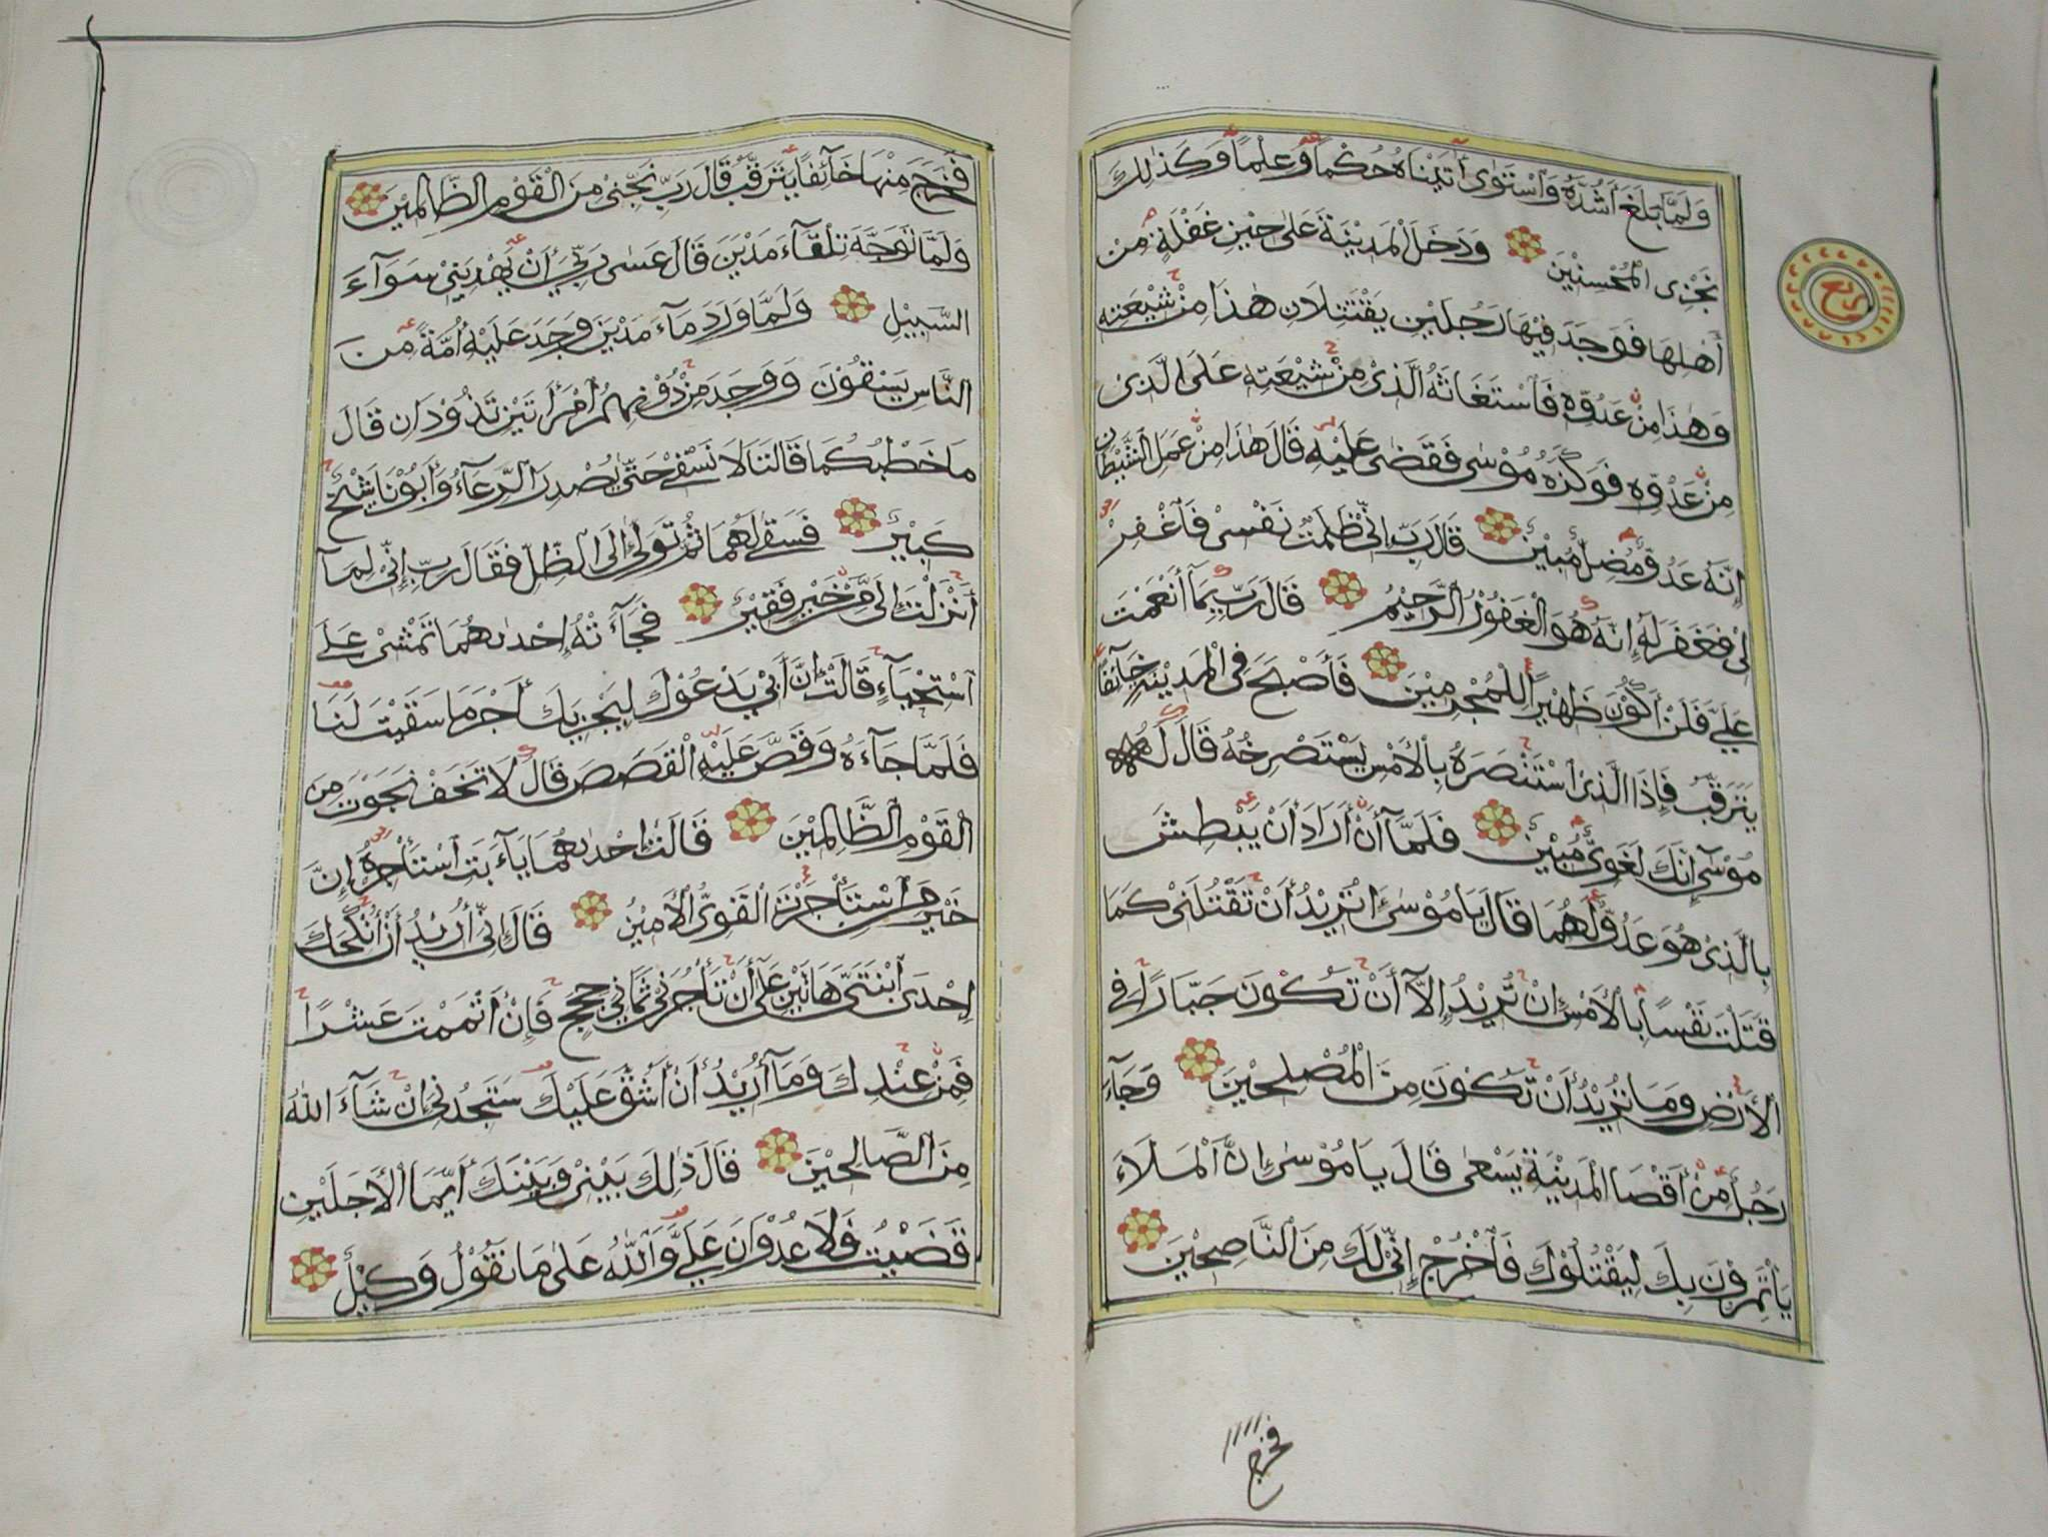 وَلَمَّا بَلَغَ أَشُدَّهُ وَٱسْتَوَىٰ آتَيْنَاهُ حُكْمًا وَعِلْمًا وَكَذَٰلِكَ
نَجْزِى الْمُحْسِنِيْنَ وَدَخَلَ الْمَدِيْنَةَ عَلَىٰ حِيْنِ غَفْلَةٍ مِنْ
أَهْلِهَا فَوَجَدَ فِيْهَا رَجُلَيْنِ يَقْتَتِلَانِ هٰذَا مِنْ شِيْعَتِهِ
وَهٰذَا مِنْ عَدُوِّهِ فَٱسْتَغَاثَهُ الَّذِىْ مِنْ شِيْعَتِهِ عَلَى الَّذِىْ
مِنْ عَدُوِّهِ فَوَكَزَهُ مُوْسٰى فَقَضٰى عَلَيْهِ قَالَ هٰذَا مِنْ عَمَلِ الشَّيْطَانِ
إِنَّهُ عَدُوٌّ مُضِلٌّ مُبِيْنٌ قَالَ رَبِّ إِنِّىْ ظَلَمْتُ نَفْسِىْ فَٱغْفِرْ
لِىْ فَغَفَرَ لَهُ إِنَّهُ هُوَ الْغَفُوْرُ الرَّحِيْمُ قَالَ رَبِّ بِمَآ أَنْعَمْتَ
عَلَيَّ فَلَنْ أَكُوْنَ ظَهِيْرًا لِلْمُجْرِمِيْنَ فَأَصْبَحَ فِى الْمَدِيْنَةِ خَآئِفًا
يَتَرَقَّبُ فَإِذَا الَّذِىْ اسْتَنْصَرَهُ بِالْأَمْسِ يَسْتَصْرِخُهُ قَالَ لَهُ
مُوْسٰٓى إِنَّكَ لَغَوِىٌّ مُبِيْنٌ فَلَمَّآ أَنْ أَرَادَ أَنْ يَبْطِشَ
بِالَّذِىْ هُوَ عَدُوٌّ لَهُمَا قَالَ يَا مُوْسٰىٓ اَتُرِيْدُ أَنْ تَقْتُلَنِىْ كَمَا
قَتَلْتَ نَفْسًا بِالْأَمْسِ إِنْ تُرِيْدُ إِلَّآ أَنْ تَكُوْنَ جَبَّارًا فِى
الْأَرْضِ وَمَا تُرِيْدُ أَنْ تَكُوْنَ مِنَ الْمُصْلِحِيْنَ وَجَآءَ
رَجُلٌ مِنْ أَقْصَا الْمَدِيْنَةِ يَسْعٰى قَالَ يَا مُوْسٰىٓ إِنَّ الْمَلَاءَ
يَأْتَمِرُوْنَ بِكَ لِيَقْتُلُوْكَ فَٱخْرُجْ إِنِّىْ لَكَ مِنَ النَّاصِحِيْنَ
ربع
فخرج
فَخَرَجَ مِنْهَا خَآئِفًا يَتَرَقَّبُ قَالَ رَبِّ نَجِّنِىْ مِنَ الْقَوْمِ الظَّالِمِيْنَ
وَلَمَّا تَوَجَّهَ تِلْقَآءَ مَدْيَنَ قَالَ عَسٰى رَبِّىٓ أَنْ يَهْدِيَنِىْ سَوَآءَ
السَّبِيْلِ وَلَمَّا وَرَدَ مَآءَ مَدْيَنَ وَجَدَ عَلَيْهِ أُمَّةً مِنَ
النَّاسِ يَسْقُوْنَ وَوَجَدَ مِنْ دُوْنِهِمُ امْرَأَتَيْنِ تَذُوْدَانِ قَالَ
مَا خَطْبُكُمَا قَالَتَا لَا نَسْقِىْ حَتّٰى يُصْدِرَ الرِّعَآءُ وَأَبُوْنَا شَيْخٌ
كَبِيْرٌ فَسَقٰى لَهُمَا ثُمَّ تَوَلّٰىٓ إِلَى الظِّلِّ فَقَالَ رَبِّ إِنِّىْ لِمَآ
أَنْزَلْتَ إِلَيَّ مِنْ خَيْرٍ فَقِيْرٌ فَجَآءَتْهُ إِحْدٰىهُمَا تَمْشِىْ عَلَى
ٱسْتِحْيَآءٍ قَالَتْ إِنَّ أَبِىْ يَدْعُوْكَ لِيَجْزِيَكَ أَجْرَ مَا سَقَيْتَ لَنَا
فَلَمَّا جَآءَهُ وَقَصَّ عَلَيْهِ الْقَصَصَ قَالَ لَا تَخَفْ نَجَوْتَ مِنَ
الْقَوْمِ الظَّالِمِيْنَ قَالَتْ إِحْدٰىهُمَا يَآءَبَتِ ٱسْتَأْجِرْهُ إِنَّ
خَيْرَ مَنِ ٱسْتَأْجَرْتَ الْقَوِىُّ الْأَمِيْنُ قَالَ إِنِّىٓ أُرِيْدُ أَنْ أُنْكِحَكَ
إِحْدَى ٱبْنَتَىَّ هَاتَيْنِ عَلٰىٓ أَنْ تَأْجُرَنِىْ ثَمَانِىَ حِجَجٍ فَإِنْ أَتْمَمْتَ عَشْرًا
فَمِنْ عِنْدِكَ وَمَآ أُرِيْدُ أَنْ أَشُقَّ عَلَيْكَ سَتَجِدُنِىٓ إِنْ شَآءَ اللّٰهُ
مِنَ الصَّالِحِيْنَ قَالَ ذٰلِكَ بَيْنِىْ وَبَيْنَكَ أَيَّمَا الْأَجَلَيْنِ
قَضَيْتُ فَلَا عُدْوَانَ عَلَيَّ وَاللّٰهُ عَلٰى مَا نَقُوْلُ وَكِيْلٌ